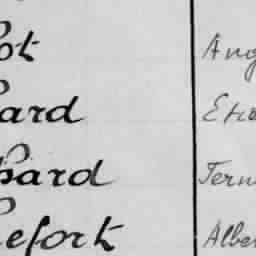 ot Ang
ard Etie
pard Fern
efort Alber